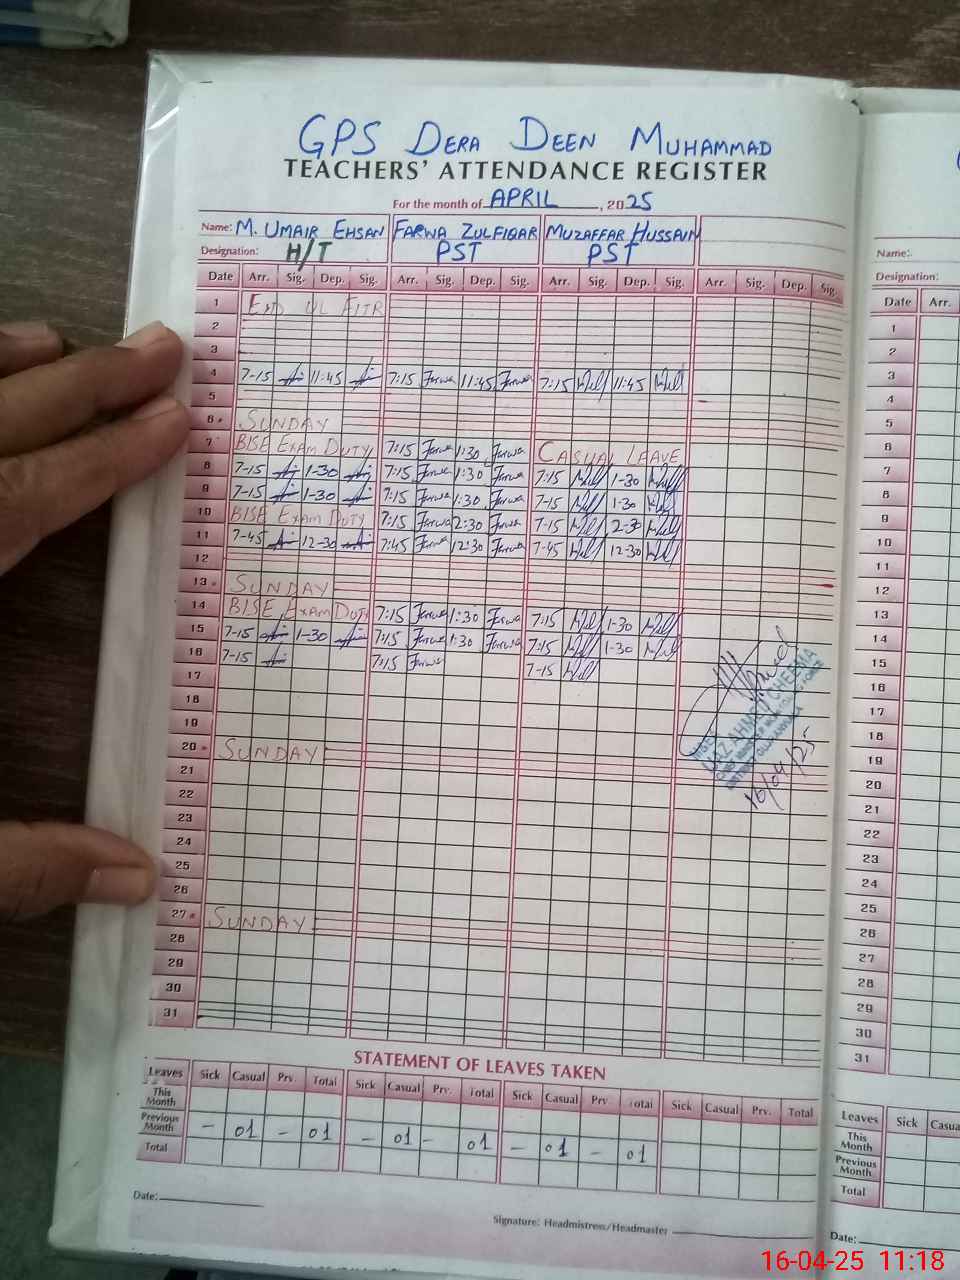 GPS DERA DEEN MUHAMMAD
TEACHERS' ATTENDANCE REGISTER
For the month of APRIL, 2025
Name: M. UMAIR EHSAN FARWA ZULFIQAR MUZAFFAR HUSSAIN
Designation: H/T PST PST
Date Arr. Sig. Dep. Sig. Arr. Sig. Dep. Sig. Arr. Sig. Dep. Sig. Arr. Sig. Dep. Sig.
1 EID UL FITR
2
3
4 7-15 11:45 7:15 Farwa 11:45 Farwa 7:15 11:45
5
6 SUNDAY
7 BISE EXAM DUTY 7:15 Farwa 1:30 Farwa CASUAL LEAVE
8 7-15 1-30 7:15 Farwa 1:30 Farwa 7:15 1-30
9 7-15 1-30 7:15 Farwa 1:30 Farwa 7-15 1:30
10 BISE EXAM DUTY 7:15 Farwa 2:30 Farwa 7-15 2-30
11 7-45 12-30 7:45 Farwa 12:30 Farwa 7-45 12-30
12
13 SUNDAY
14 BISE EXAM DUTY 7:15 Farwa 1:30 Farwa 7:15 1-30
15 7-15 1-30 7:15 Farwa 1:30 Farwa 7:15 1-30
16 7-15 7:15 Farwa 7-15
17
18
19
20 SUNDAY
21
22
23
24
25
26
27 SUNDAY
28
29
30
31
AHMAD CHEEMA
16/04/25
STATEMENT OF LEAVES TAKEN
Leaves Sick Casual Prv. Total Sick Casual Prv. Total Sick Casual Prv. Total Sick Casual Prv. Total
This Month
Previous Month - 01 - 01 - 01 - 01 - 01 - 01
Total
Date:
Signature: Headmistress/Headmaster
Name:
Designation:
Date Arr.
1
2
3
4
5
6
7
8
9
10
11
12
13
14
15
16
17
18
19
20
21
22
23
24
25
26
27
28
29
30
31
Leaves Sick Casua
This Month
Previous Month
Total
Date:
16-04-25 11:18